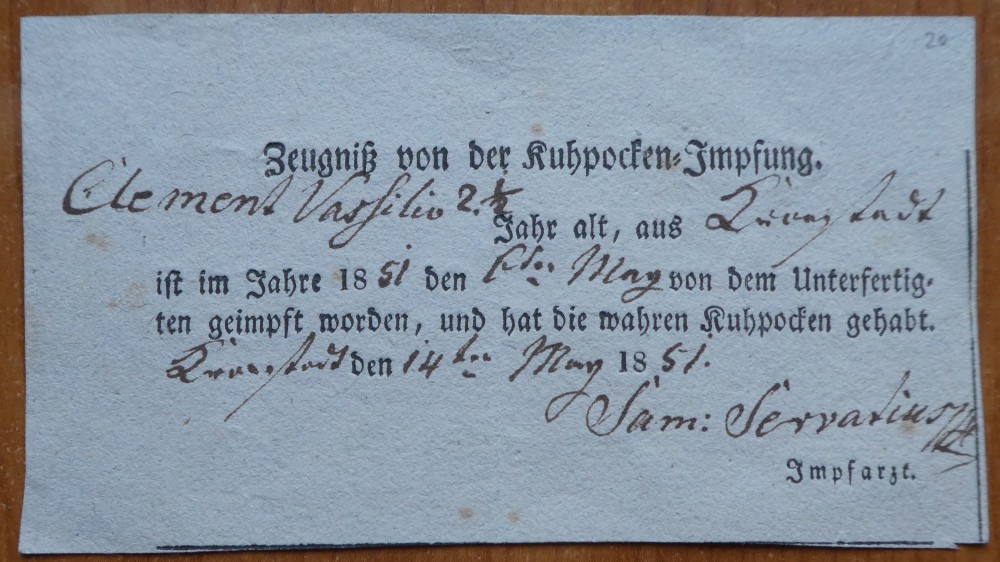 20
Zeugniß von der Kuhpocken-Impfung.
Clement Vassilio 2.½
Jahr alt, aus Kronstadt
ist im Jahre 1851 den 6ten May von dem Unterfertig-
ten geimpft worden, und hat die wahren Kuhpocken gehabt.
Kronstadt den 14ten May 1851.
Sam: Servatius
Impfarzt.